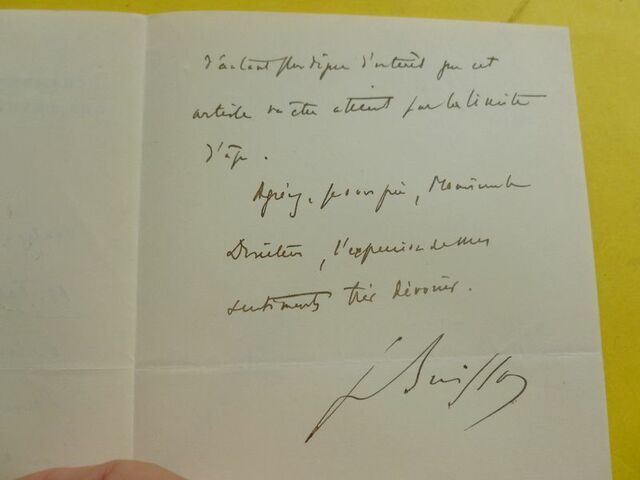 d'autant plus digne d'intérêt que cet
artiste va être atteint par la limite
d'âge.
Agréez, je vous prie, Monsieur le
Directeur, l'expression de mes
sentiments très dévoués.
F. Buisson